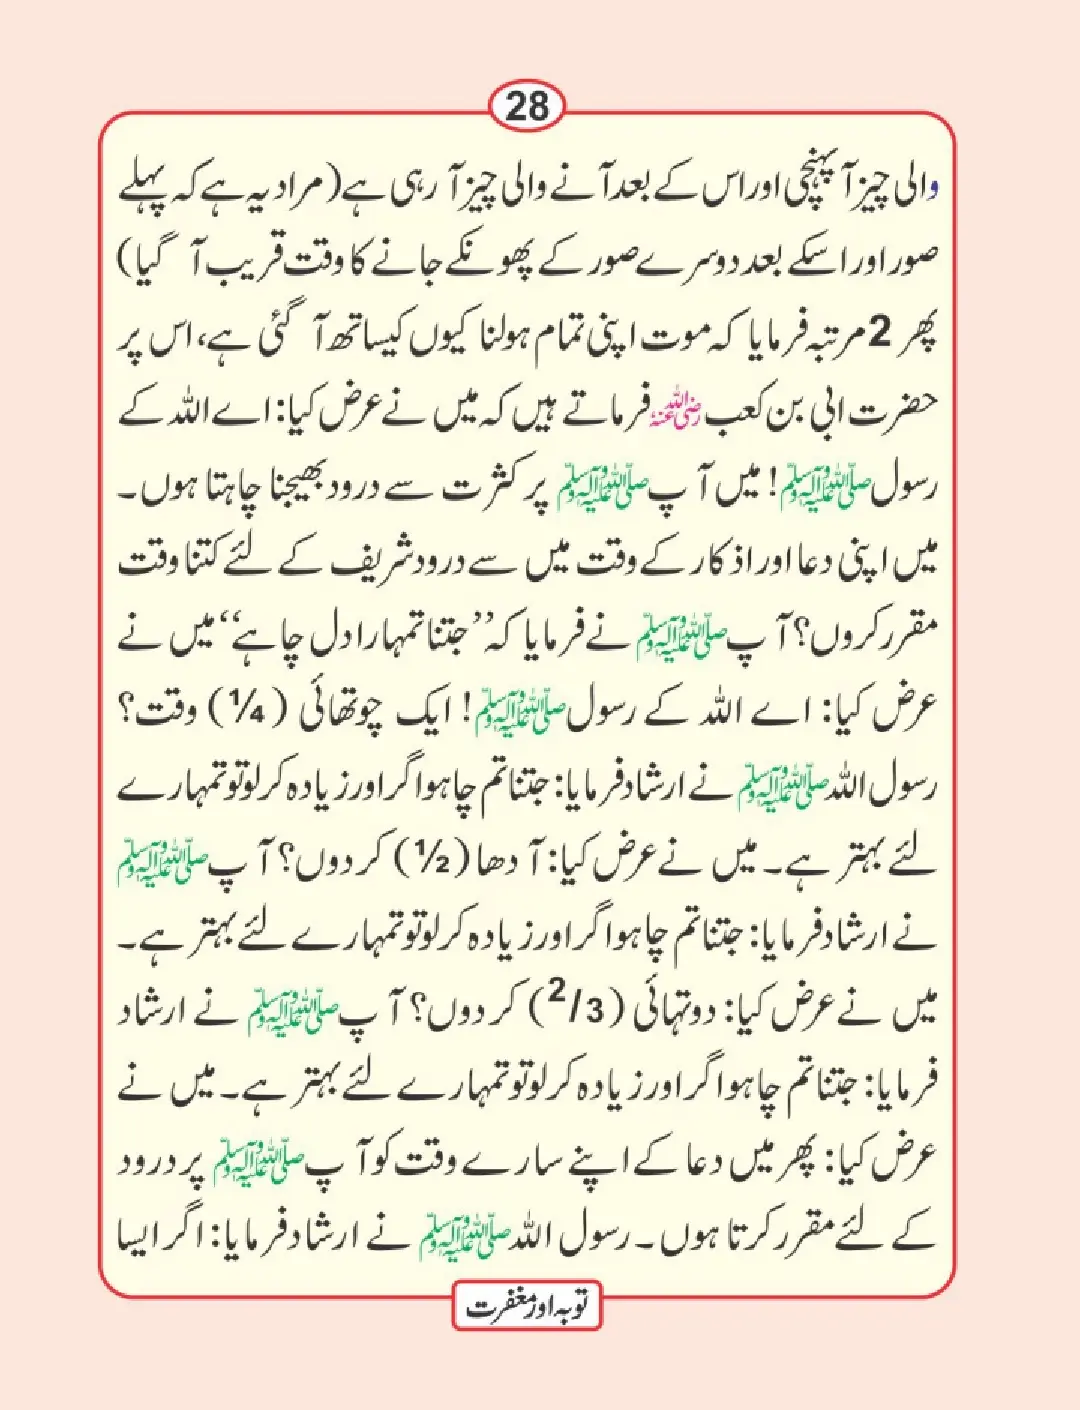 28
والی چیز آ پہنچی اور اس کے بعد آنے والی چیز آ رہی ہے (مراد یہ ہے کہ پہلے
صور اور اسکے بعد دوسرے صور کے پھونکے جانے کا وقت قریب آ گیا)
پھر 2 مرتبہ فرمایا کہ موت اپنی تمام ہولنا کیوں کیساتھ آ گئی ہے، اس پر
حضرت ابی بن کعب رضی اللہ عنہ فرماتے ہیں کہ میں نے عرض کیا: اے اللہ کے
رسول ﷺ! میں آپ ﷺ پر کثرت سے درود بھیجنا چاہتا ہوں۔
میں اپنی دعا اور اذکار کے وقت میں سے درود شریف کے لئے کتنا وقت
مقرر کروں؟ آپ ﷺ نے فرمایا کہ ’’جتنا تمہارا دل چاہے‘‘ میں نے
عرض کیا: اے اللہ کے رسول ﷺ! ایک چوتھائی (1/4) وقت؟
رسول اللہ ﷺ نے ارشاد فرمایا: جتنا تم چاہو اگر اور زیادہ کر لو تو تمہارے
لئے بہتر ہے۔ میں نے عرض کیا: آدھا (1/2) کر دوں؟ آپ ﷺ
نے ارشاد فرمایا: جتنا تم چاہو اگر اور زیادہ کر لو تو تمہارے لئے بہتر ہے۔
میں نے عرض کیا: دو تہائی (2/3) کر دوں؟ آپ ﷺ نے ارشاد
فرمایا: جتنا تم چاہو اگر اور زیادہ کر لو تو تمہارے لئے بہتر ہے۔ میں نے
عرض کیا: پھر میں دعا کے اپنے سارے وقت کو آپ ﷺ پر درود
کے لئے مقرر کرتا ہوں۔ رسول اللہ ﷺ نے ارشاد فرمایا: اگر ایسا
توبہ اور مغفرت